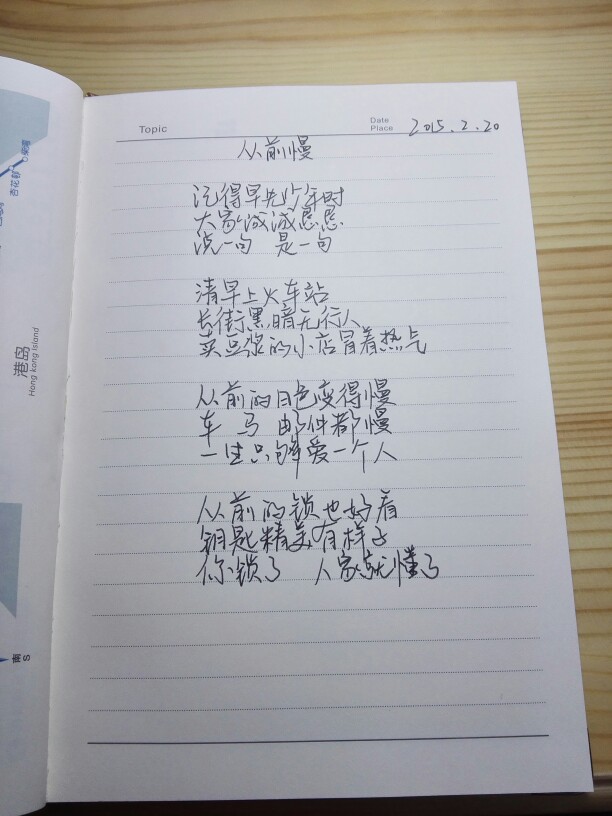 Topic
Date
Place
2015.2.20
从前慢
记得早先少年时
大家诚诚恳恳
说一句 是一句
清早上火车站
长街黑暗无行人
卖豆浆的小店冒着热气
从前的日色变得慢
车 马 邮件都慢
一生只够爱一个人
从前的锁也好看
钥匙精美有样子
你锁了 人家就懂了
港岛
Hong kong Island
南
S